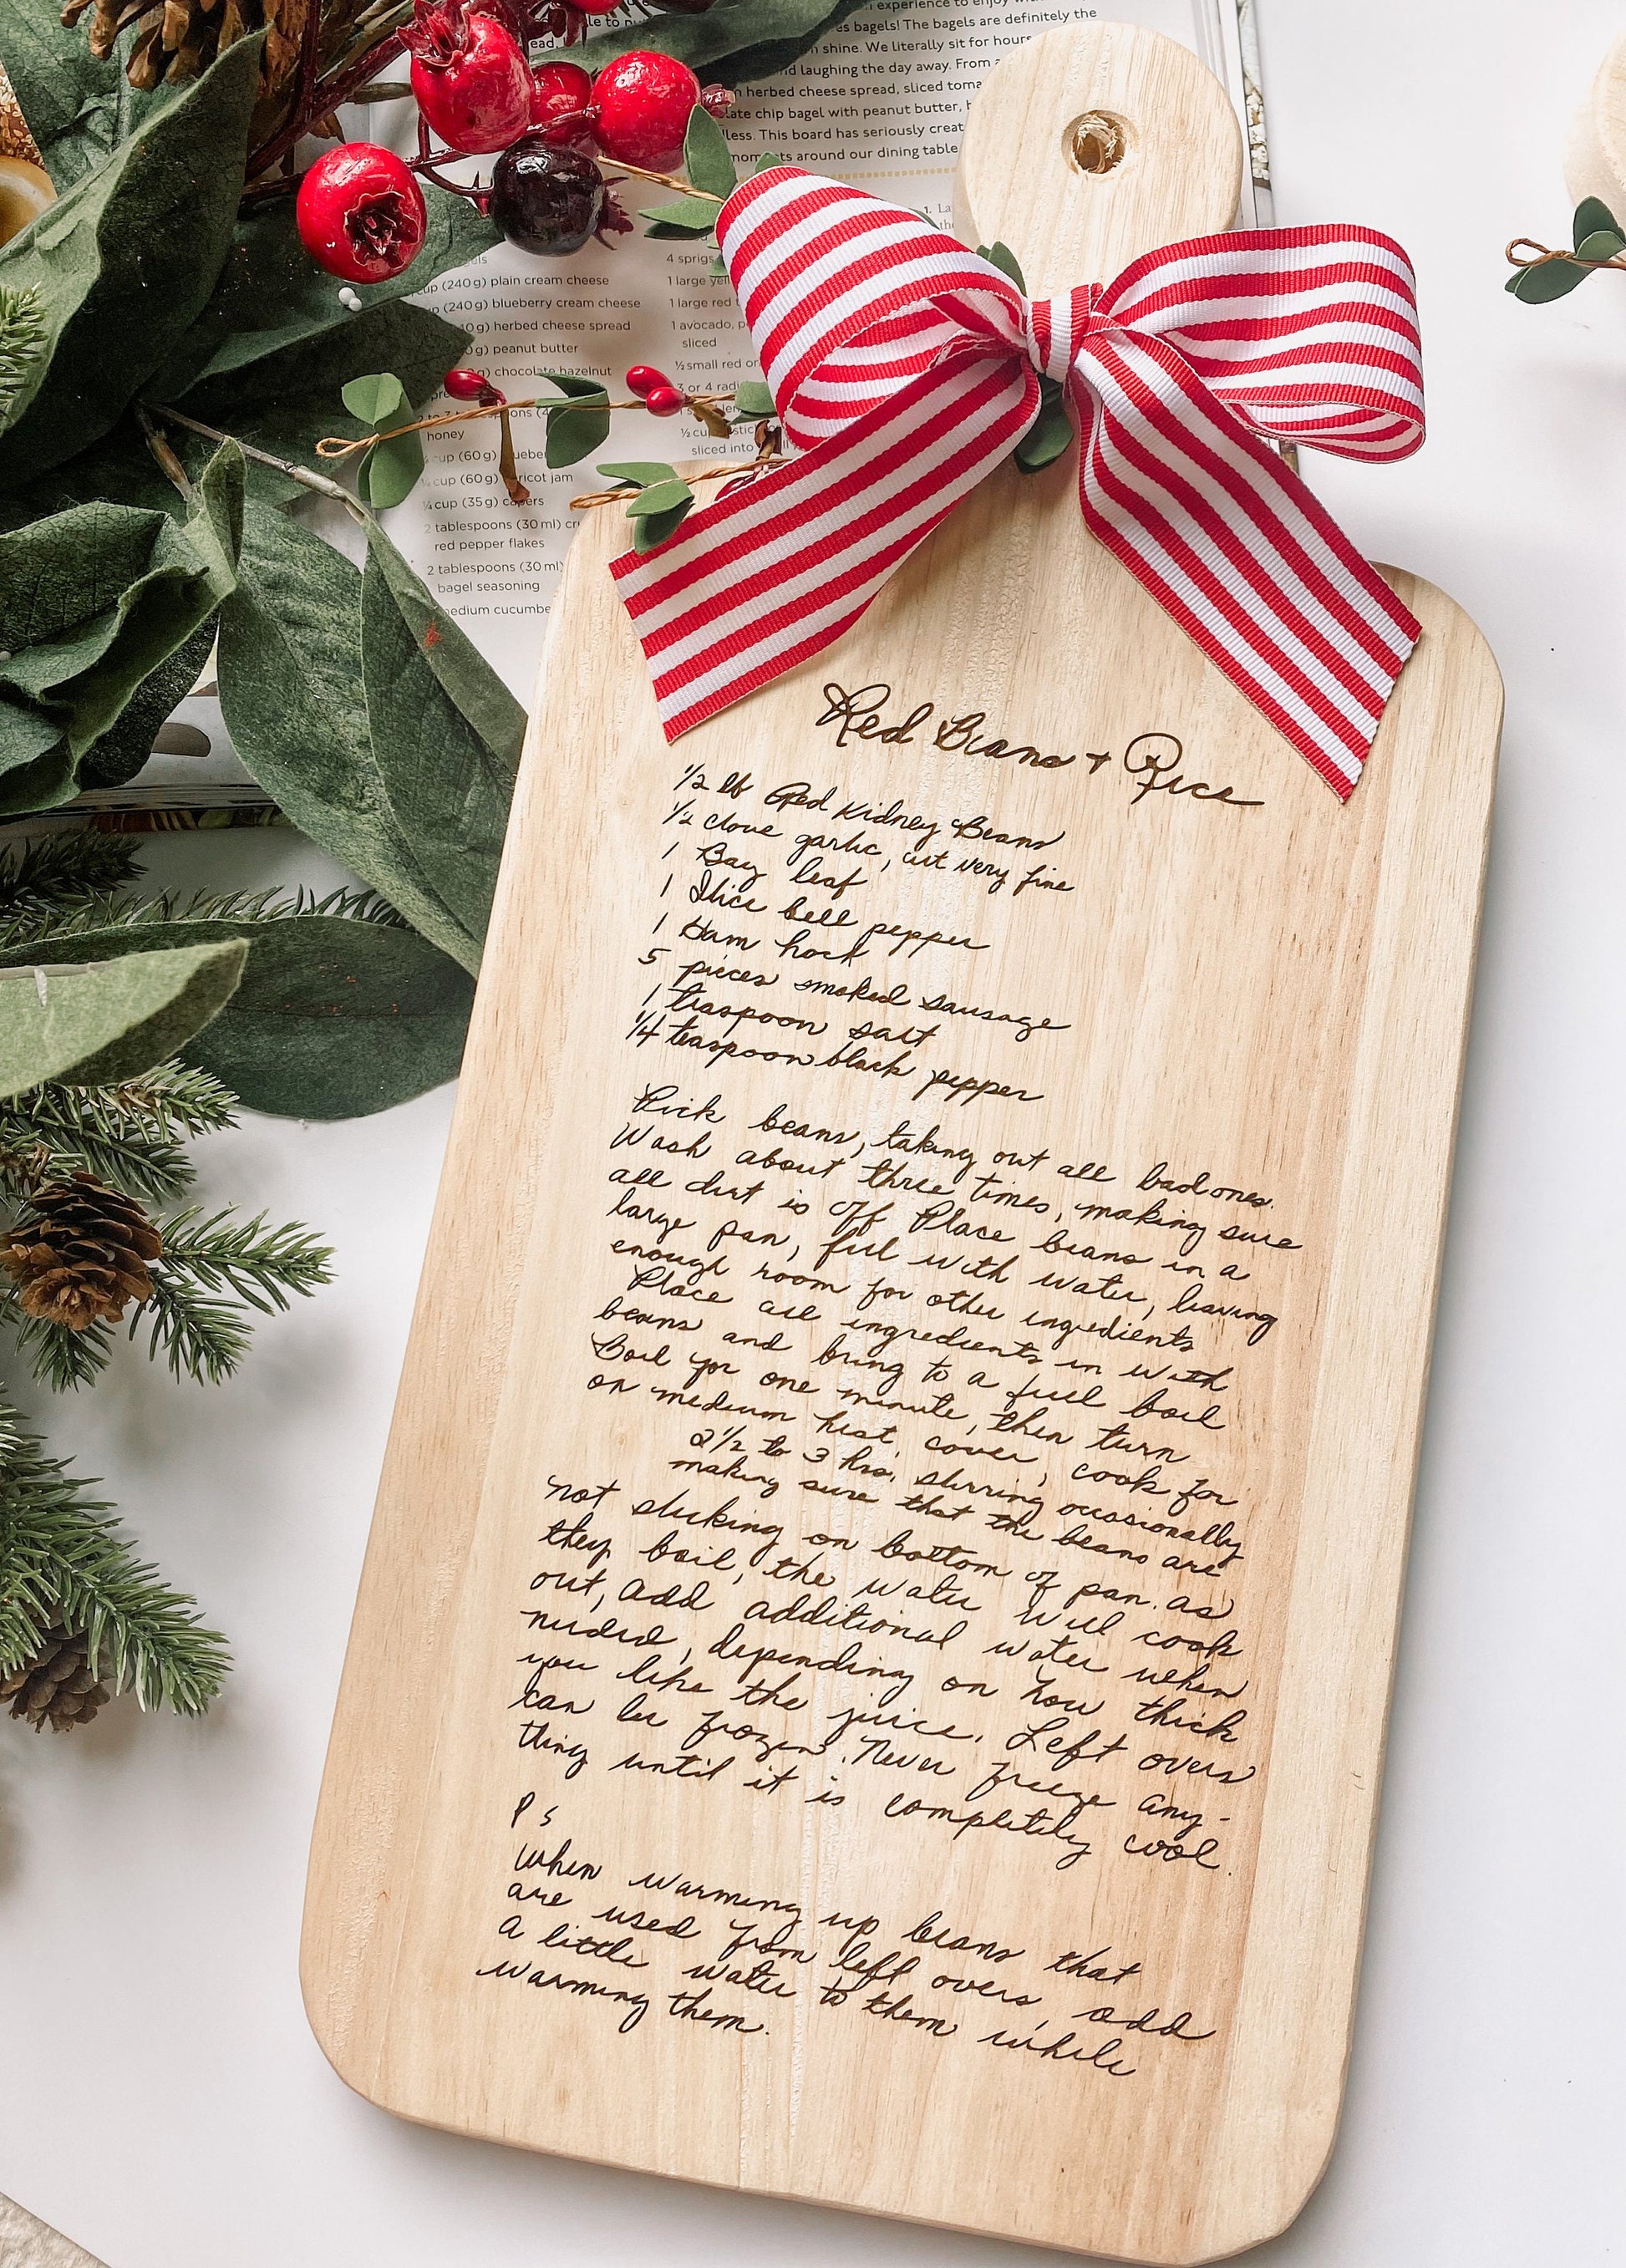 experience to enjoy
es bagels! The bagels are definitely the
shine. We literally sit for hours
nd laughing the day away. From
herbed cheese spread, sliced toma
late chip bagel with peanut butter,
less. This board has seriously creat
moments around our dining table
ead,
gels
cup (240 g) plain cream cheese
(240 g) blueberry cream cheese
g) herbed cheese spread
g) peanut butter
g) chocolate hazelnut
honey
cup (60 g)
cup (60 g) ricot jam
¼ cup (35 g) capers
2 tablespoons (30 ml)
red pepper flakes
2 tablespoons (30 ml)
bagel seasoning
medium cucumbe
4 sprigs
1 large yell
1 large red
1 avocado,
sliced
½ small red
3 or 4 radi
½ cup
sliced into
1.
Red Beans + Rice
1/2 lb Red Kidney Beans
1/2 clove garlic, cut very fine
1 Bay leaf
1 Slice bell pepper
1 Ham hock
5 pieces smoked sausage
1 teaspoon salt
1/4 teaspoon black pepper
Pick beans, taking out all bad ones.
Wash about three times, making sure
all dirt is off Place beans in a
large pan, fill with water, leaving
enough room for other ingredients
Place all ingredients in with
beans and bring to a full boil
Boil for one minute, then turn
on medium heat, cover, cook for
2 1/2 to 3 hrs, stirring occasionally
making sure that the beans are
not sticking on bottom of pan. as
they boil, the water will cook
out, add additional water when
needed, depending on how thick
you like the juice. Left overs
can be frozen. Never freeze any-
thing until it is completely cool.
PS
When warming up beans that
are used from left overs, add
a little water to them while
warming them.